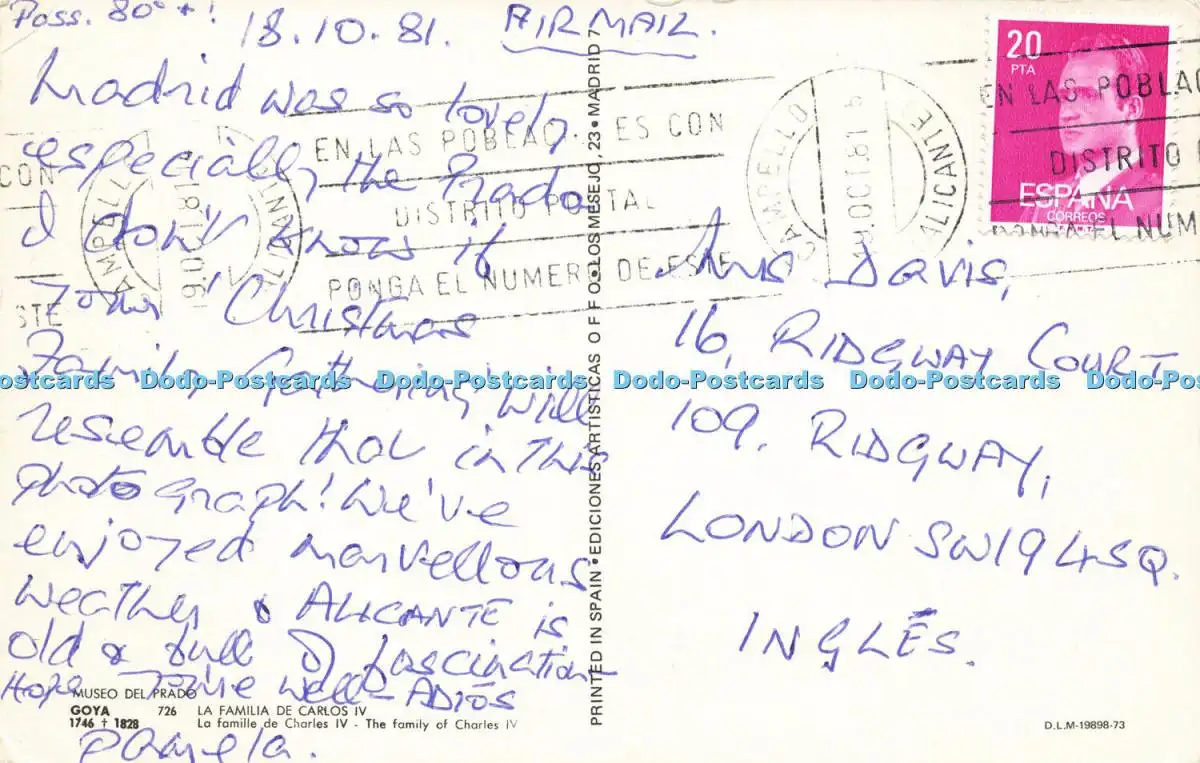 Poss. 80°+!
18.10.81. AIR MAIL.
Madrid was so lovely
especially the Prado
I don't know if
your Christmas
Family Gathering will
resemble that in this
photograph! We've
enjoyed marvellous
weather & ALICANTE is
old & full of fascination
Hope you're well - ADIÓS
Pamela.
MUSEO DEL PRADO
GOYA 726 LA FAMILIA DE CARLOS IV
1746 † 1828 La famille de Charles IV - The family of Charles IV
PRINTED IN SPAIN • EDICIONES ARTISTICAS OFFO • LOS MESEJO, 23 • MADRID 7
EN LAS POBLAC ES CON
DISTRITO POSTAL
PONGA EL NUMERO DE ESTE
CON
STE
CAMPELLO
ALICANTE
OCT.81
20
PTA
ESPAÑA
CORREOS
EN LAS POBLAC
DISTRITO
PONGA EL NUM
Davis,
16, RIDGWAY COURT
109, RIDGWAY,
LONDON SW19 4SQ.
INGLÉS.
D.L.M-19898-73
Dodo-Postcards Dodo-Postcards Dodo-Postcards Dodo-Postcards Dodo-Postcards